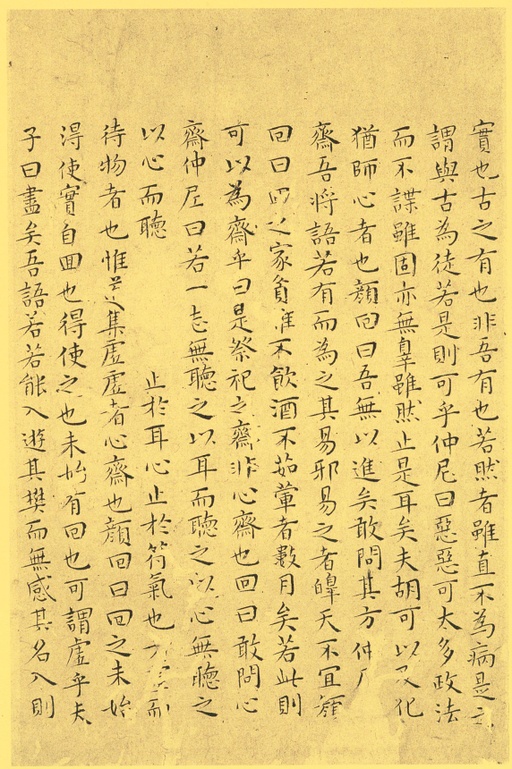 實也古之有也非吾有也若然者雖直不為病是之
謂與古為徒若是則可乎仲尼曰惡惡可太多政法
而不諜雖固亦無辠雖然止是耳矣夫胡可以及化
猶師心者也顏回曰吾無以進矣敢問其方仲尼
齋吾將語若有而為之其易邪易之者皞天不宜顏
回曰回之家貧唯不飲酒不茹葷者數月矣若此則
可以為齋乎曰是祭祀之齋非心齋也回曰敢問心
齋仲尼曰若一志無聽之以耳而聽之以心無聽之
以心而聽 止於耳心止於符氣也 而
待物者也惟道集虛虛者心齋也顏回曰回之未始
得使實自回也得使之也未始有回也可謂虛乎夫
子曰盡矣吾語若若能入遊其樊而無感其名入則